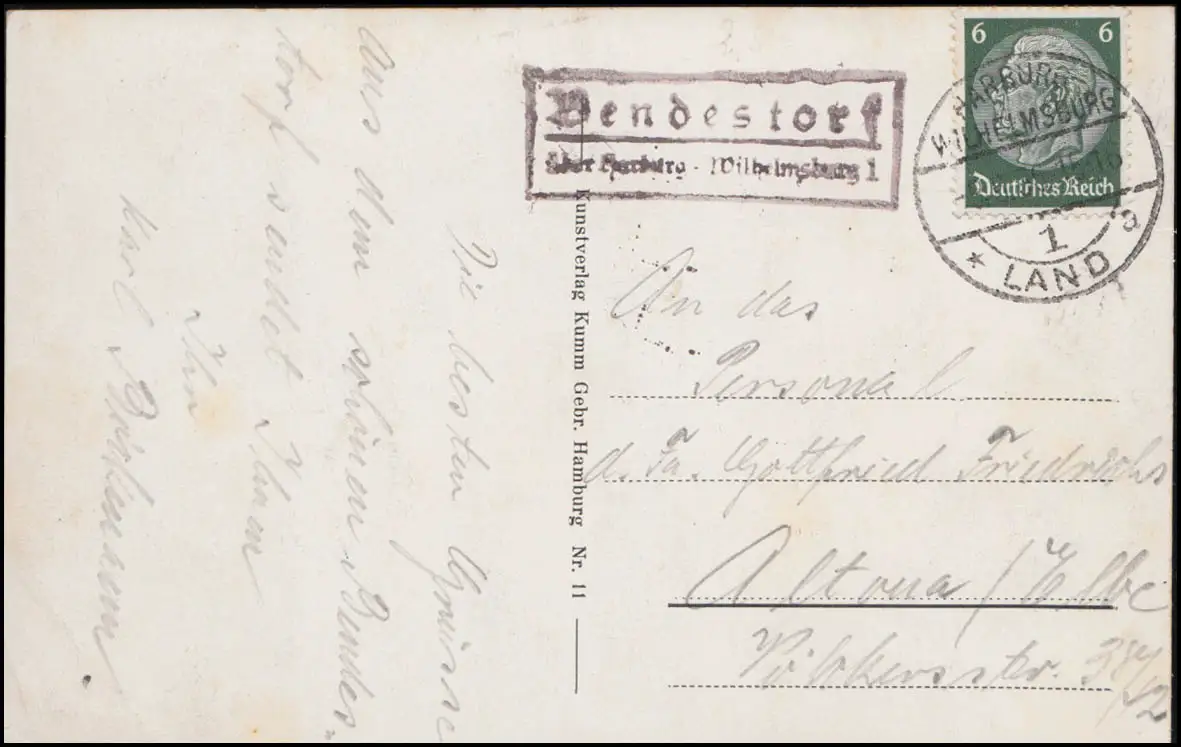 Die besten Grüsse
Aus dem schönen Bendes-
torf sendet Ihnen
Ihr
Karl
Bendestorf
über Harburg - Wilhelmsburg 1
Kunstverlag Kumm Gebr. Hamburg Nr. 11
6 6
Deutsches Reich
HARBURG
WILHELMSBURG
1
a
* LAND
An das
Personal
d. Fa. Gottfried Friedrichs
Altona / Elbe